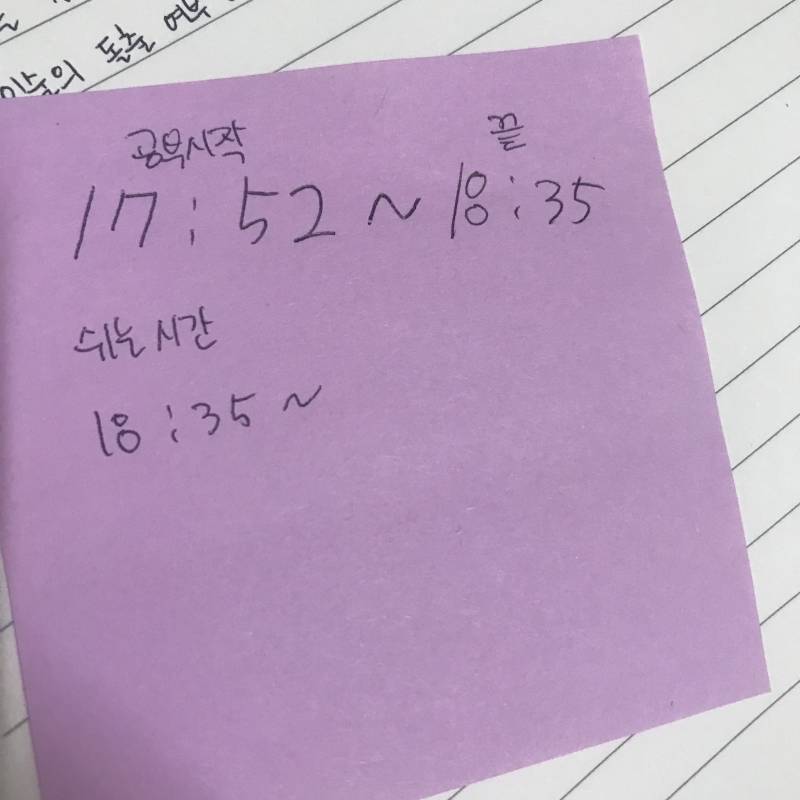 이슬의 돌출 여부
공부시작 끝
17:52 ~ 18:35
쉬는 시간
18:35 ~